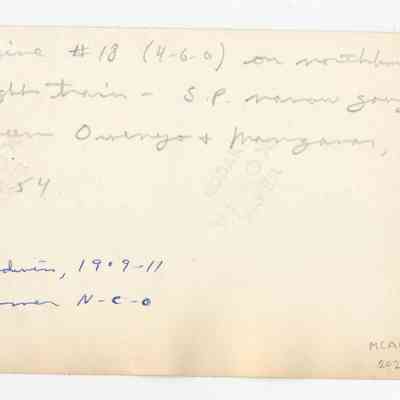 ine #18 (4-6-0) on northbou
ght train - S.P. narrow gaug
een Owenyo & Manzanar,
54
dwin, 1909-11
rmer N-C-O
MCA
202